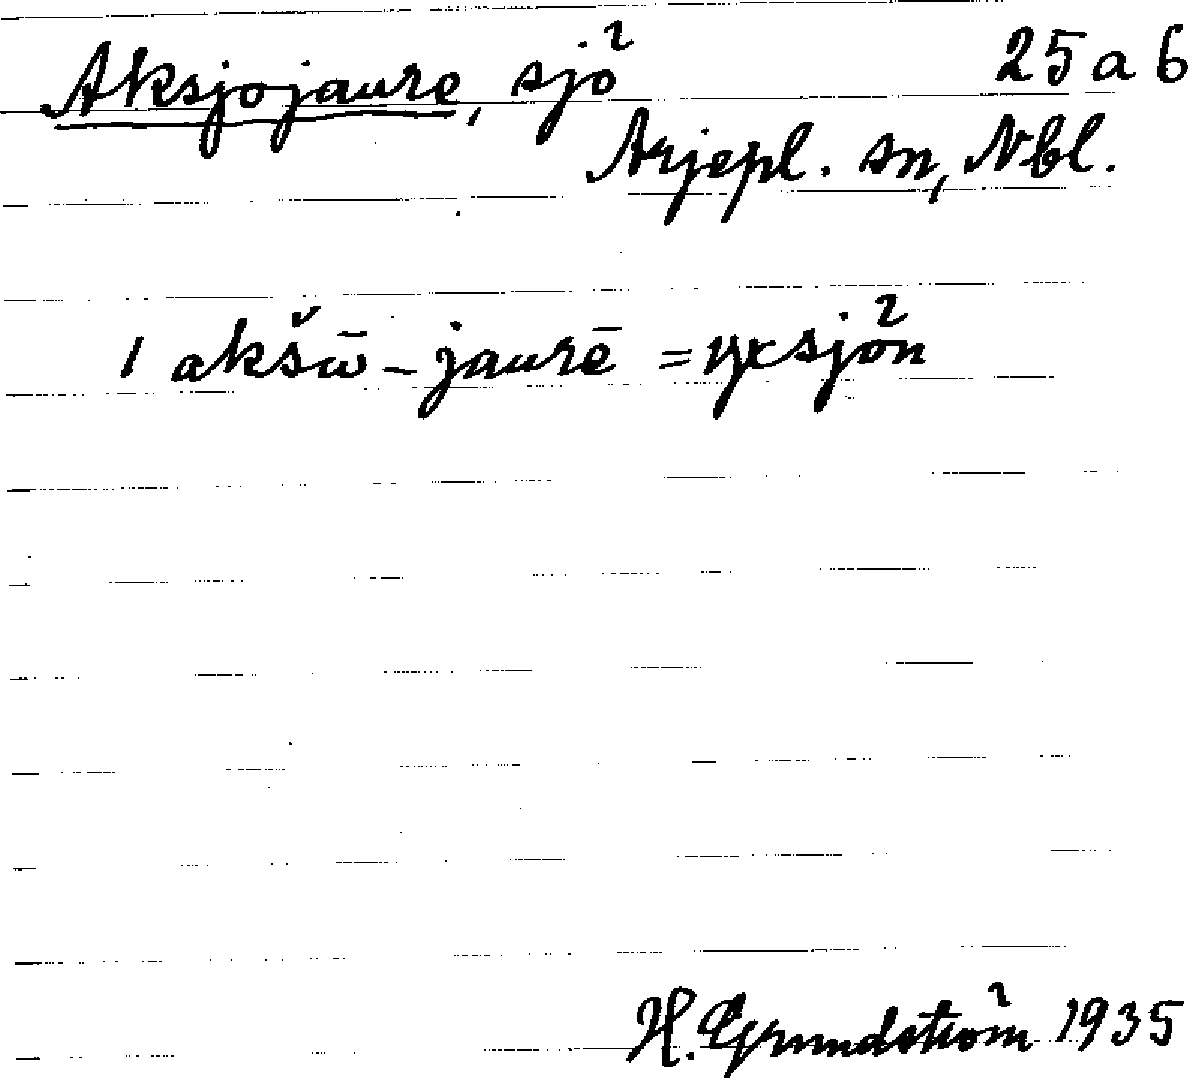 Aksjojaure, sjö 25 a 6
Arjepl. sn, Nbl.
1 akšω̄-jaurē = yxsjön
H. Grundström 1935